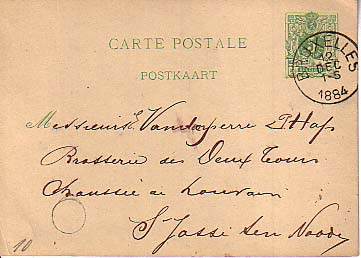 CARTE POSTALE
POSTKAART
BRUXELLES
2
DEC
1-S
1884
Messieurs Vandenperre & Hap
Brasserie des Deux Tours
Chaussée de Louvain
St Josse ten Noode
10